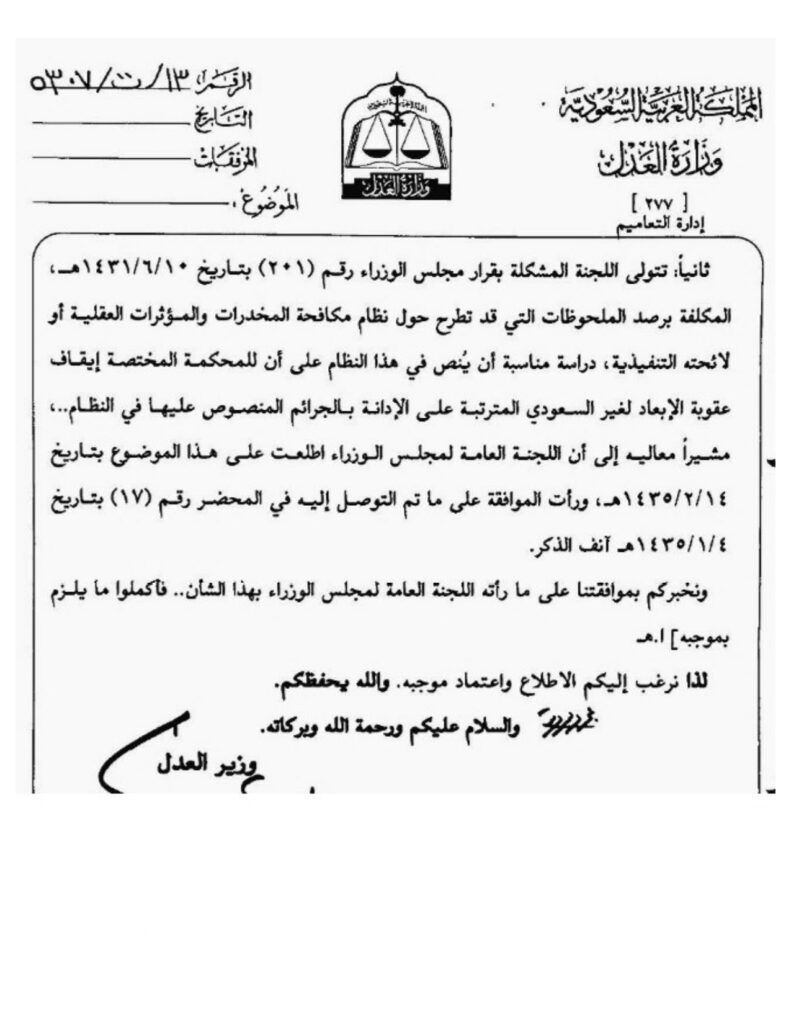 المملكة العربية السعودية
وزارة العدل
[ ٢٧٧ ]
إدارة التعاميم
وزارة العدل
الرقم: ١٣/ت/٥٣٠٧
التاريخ
المرفقات
الموضوع:
ثانياً: تتولى اللجنة المشكلة بقرار مجلس الوزراء رقم (٢٠١) بتاريخ ١٤٣١/٦/١٠هـ،
المكلفة برصد الملحوظات التي قد تطرح حول نظام مكافحة المخدرات والمؤثرات العقلية أو
لائحته التنفيذية، دراسة مناسبة أن يُنص في هذا النظام على أن للمحكمة المختصة إيقاف
عقوبة الإبعاد لغير السعودي المترتبة على الإدانة بالجرائم المنصوص عليها في النظام..،
مشيراً معاليه إلى أن اللجنة العامة لمجلس الوزراء اطلعت على هذا الموضوع بتاريخ
١٤٣٥/٢/١٤هـ، ورأت الموافقة على ما تم التوصل إليه في المحضر رقم (١٧) بتاريخ
١٤٣٥/١/٤هـ آنف الذكر.
ونخبركم بموافقتنا على ما رأته اللجنة العامة لمجلس الوزراء بهذا الشأن.. فأكملوا ما يلزم
بموجبه] ا.هـ
لذا نرغب إليكم الاطلاع واعتماد موجبه. والله يحفظكم.
والسلام عليكم ورحمة الله وبركاته.
وزير العدل